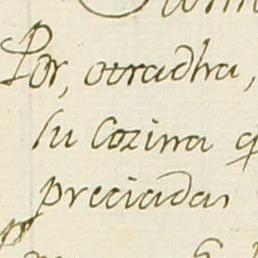 Por, otradha,
su Cozina q
preciadas